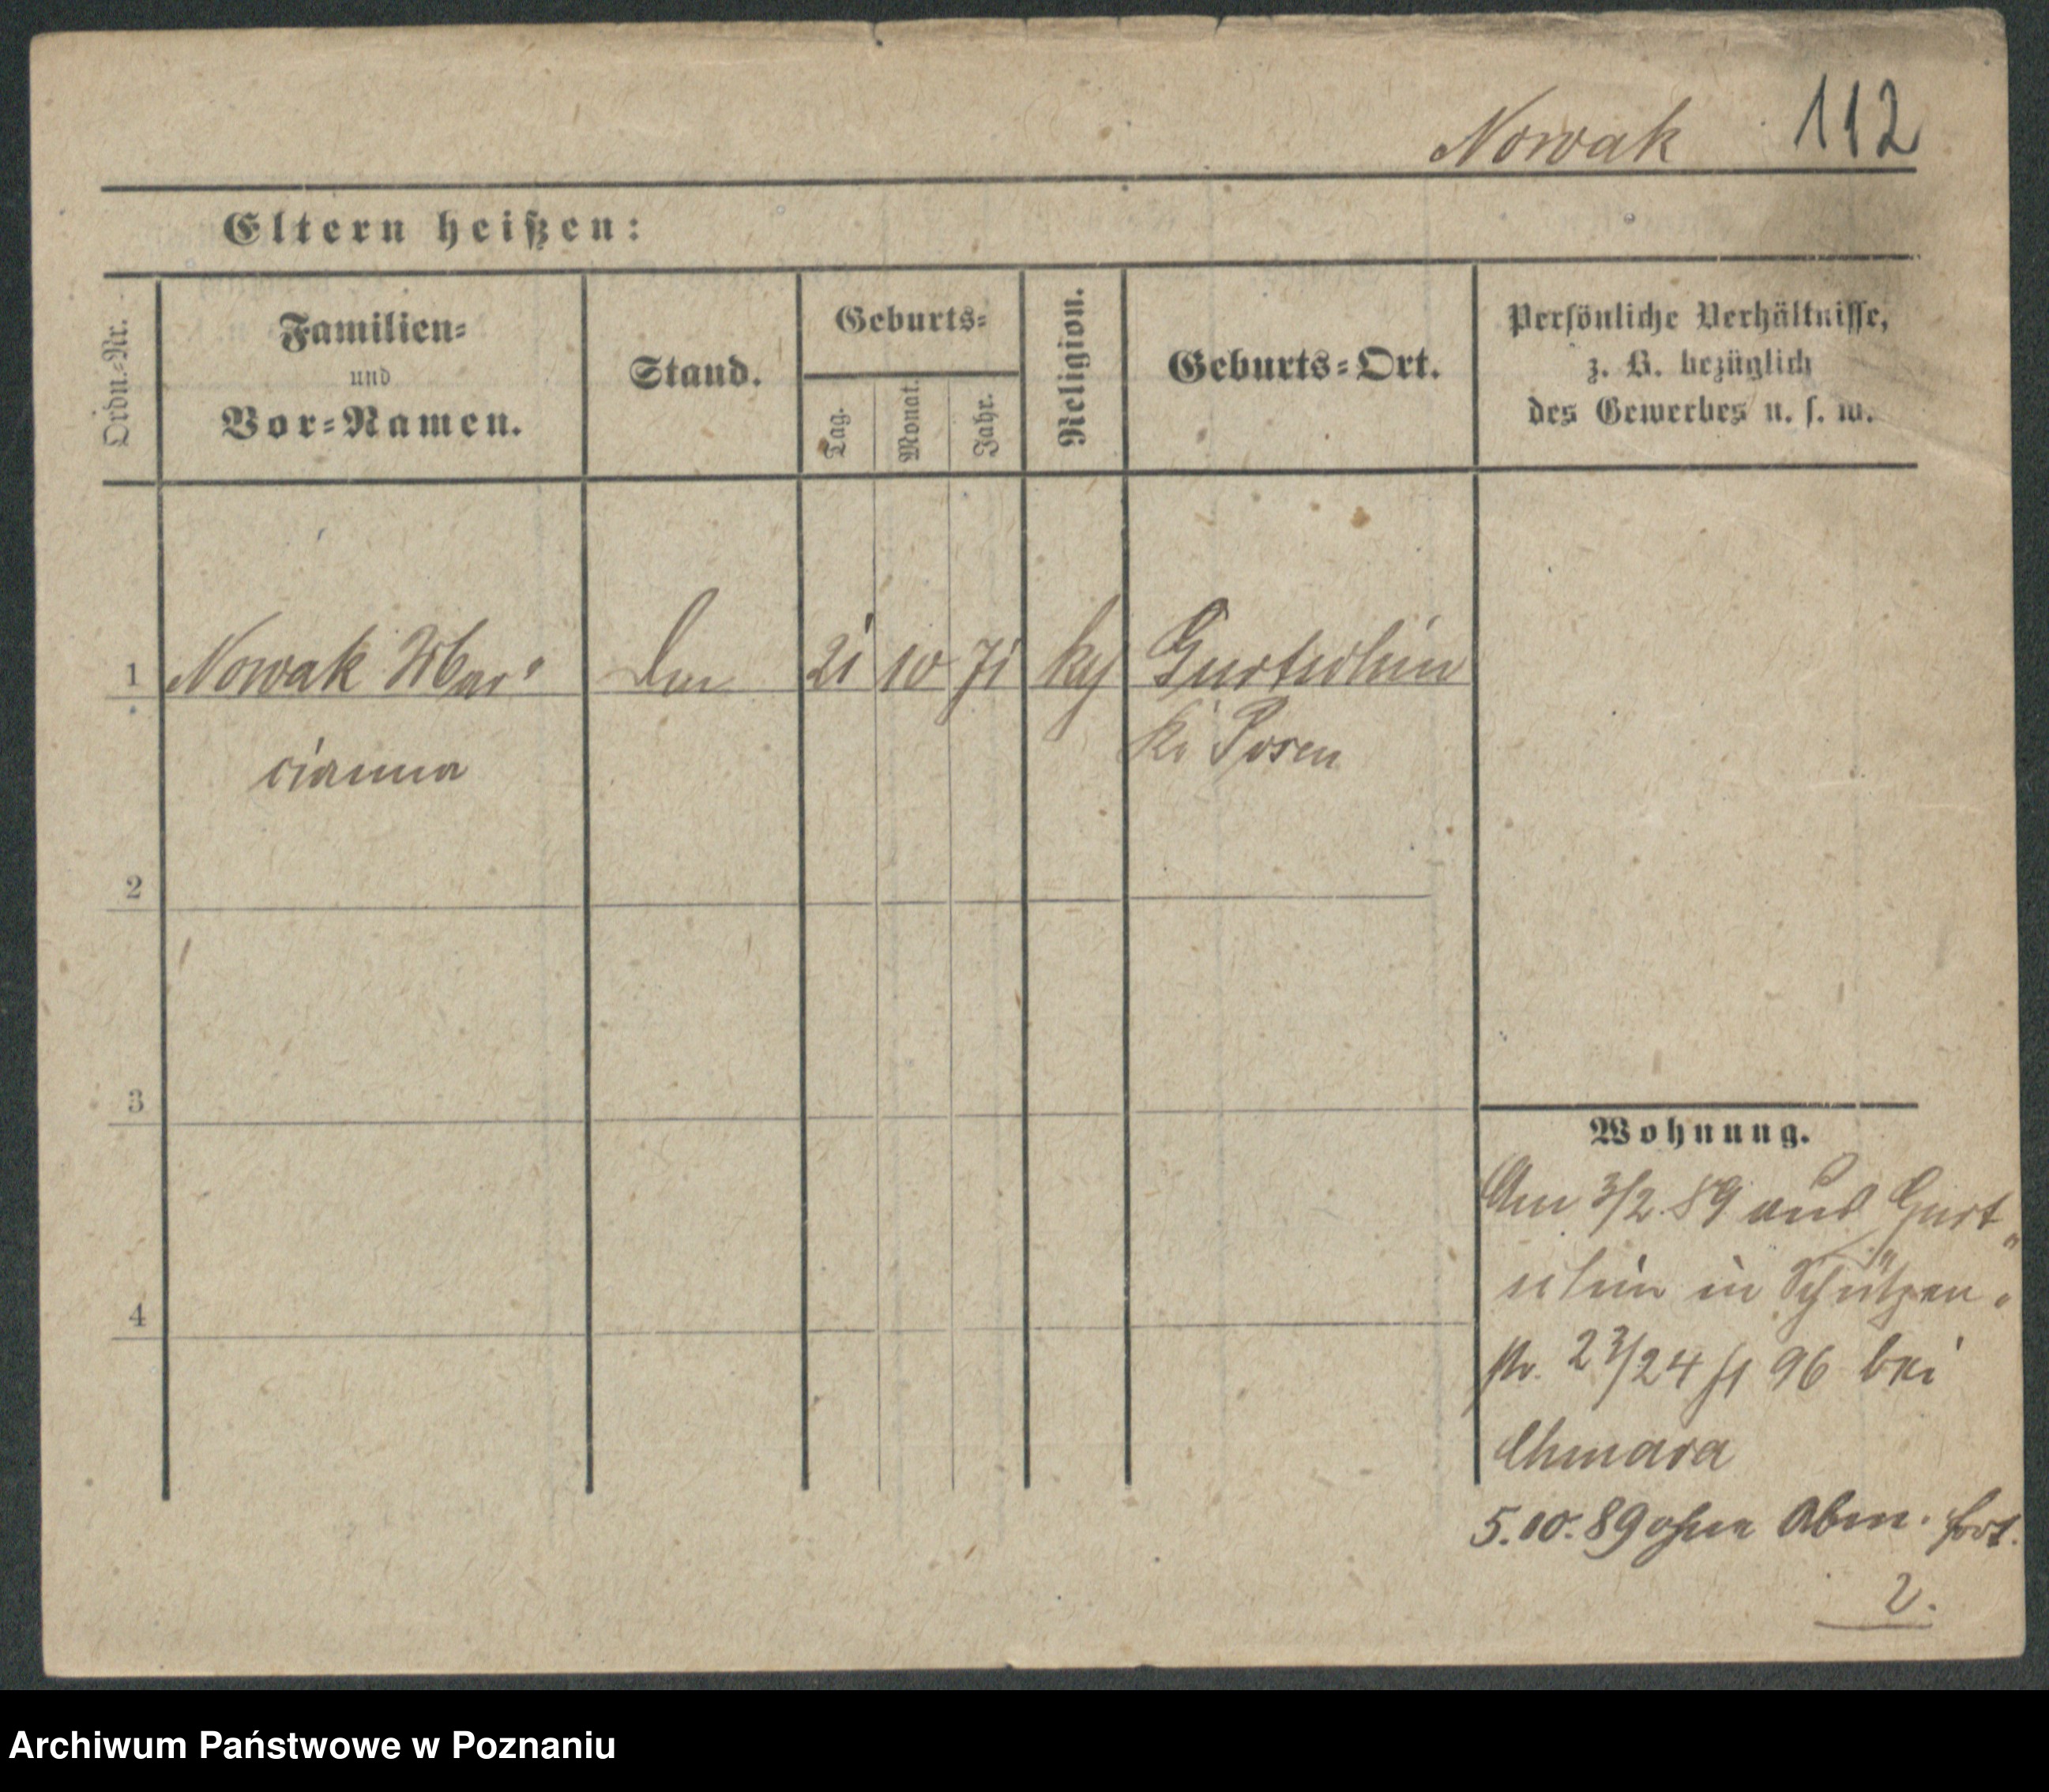 Nowak 112
Eltern heißen:
Ordn.-Nr.
Familien-
und
Vor-Namen.
Stand.
Geburts-
Tag.
Monat.
Jahr.
Religion.
Geburts-Ort.
Persönliche Verhältnisse,
z. B. bezüglich
des Gewerbes u. s. w.
1 Nowak Mar- 21 10 71 Gurtschin
cianna Kr Posen
2
3
4
Wohnung.
Am 3/2 89 aus Gurt
schin in Schützen-
str. 23/24 96 bei
Chmara
5.10.89 ohne Abm. fort.
2.
Archiwum Państwowe w Poznaniu